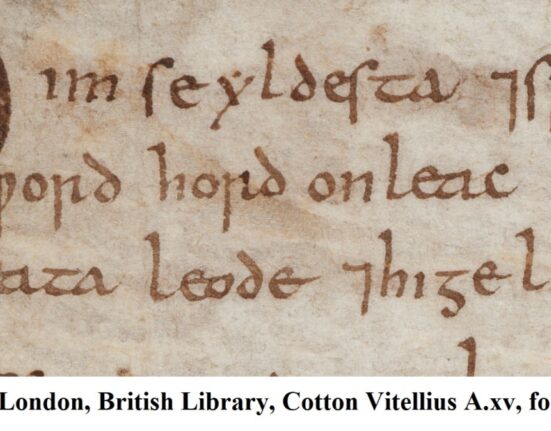 im se yldesta ⁊s
ƿord hord onleac
ata leode ⁊hige l
London, British Library, Cotton Vitellius A.xv, fo